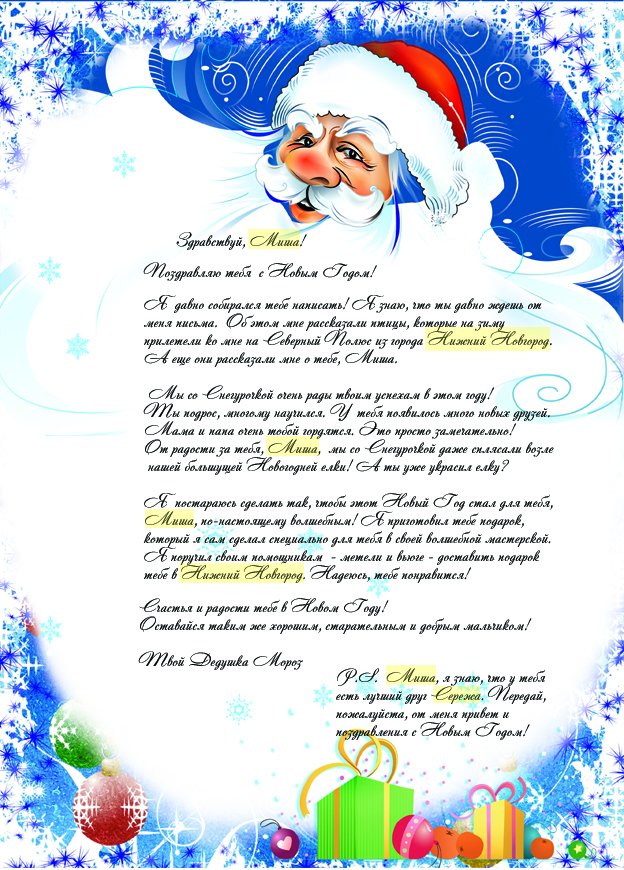 Здравствуй, Миша!
Поздравляю тебя с Новым Годом!
Я давно собирался тебе написать! Я знаю, что ты давно ждешь от
меня письма. Об этом мне рассказали птицы, которые на зиму
прилетели ко мне на Северный Полюс из города Нижний Новгород.
А еще они рассказали мне о тебе, Миша.
Мы со Снегурочкой очень рады твоим успехам в этом году!
Ты подрос, многому научился. У тебя появилось много новых друзей.
Мама и папа очень тобой гордятся. Это просто замечательно!
От радости за тебя, Миша, мы со Снегурочкой даже сплясали возле
нашей большущей Новогодней елки! А ты уже украсил елку?
Я постараюсь сделать так, чтобы этот Новый Год стал для тебя,
Миша, по-настоящему волшебным! Я приготовил тебе подарок,
который я сам сделал специально для тебя в своей волшебной мастерской.
Я поручил своим помощникам - метели и вьюге - доставить подарок
тебе в Нижний Новгород. Надеюсь, тебе понравится!
Счастья и радости тебе в Новом Году!
Оставайся таким же хорошим, старательным и добрым мальчиком!
Твой Дедушка Мороз
P.S. Миша, я знаю, что у тебя
есть лучший друг Сережа. Передай,
пожалуйста, от меня привет и
поздравления с Новым Годом!